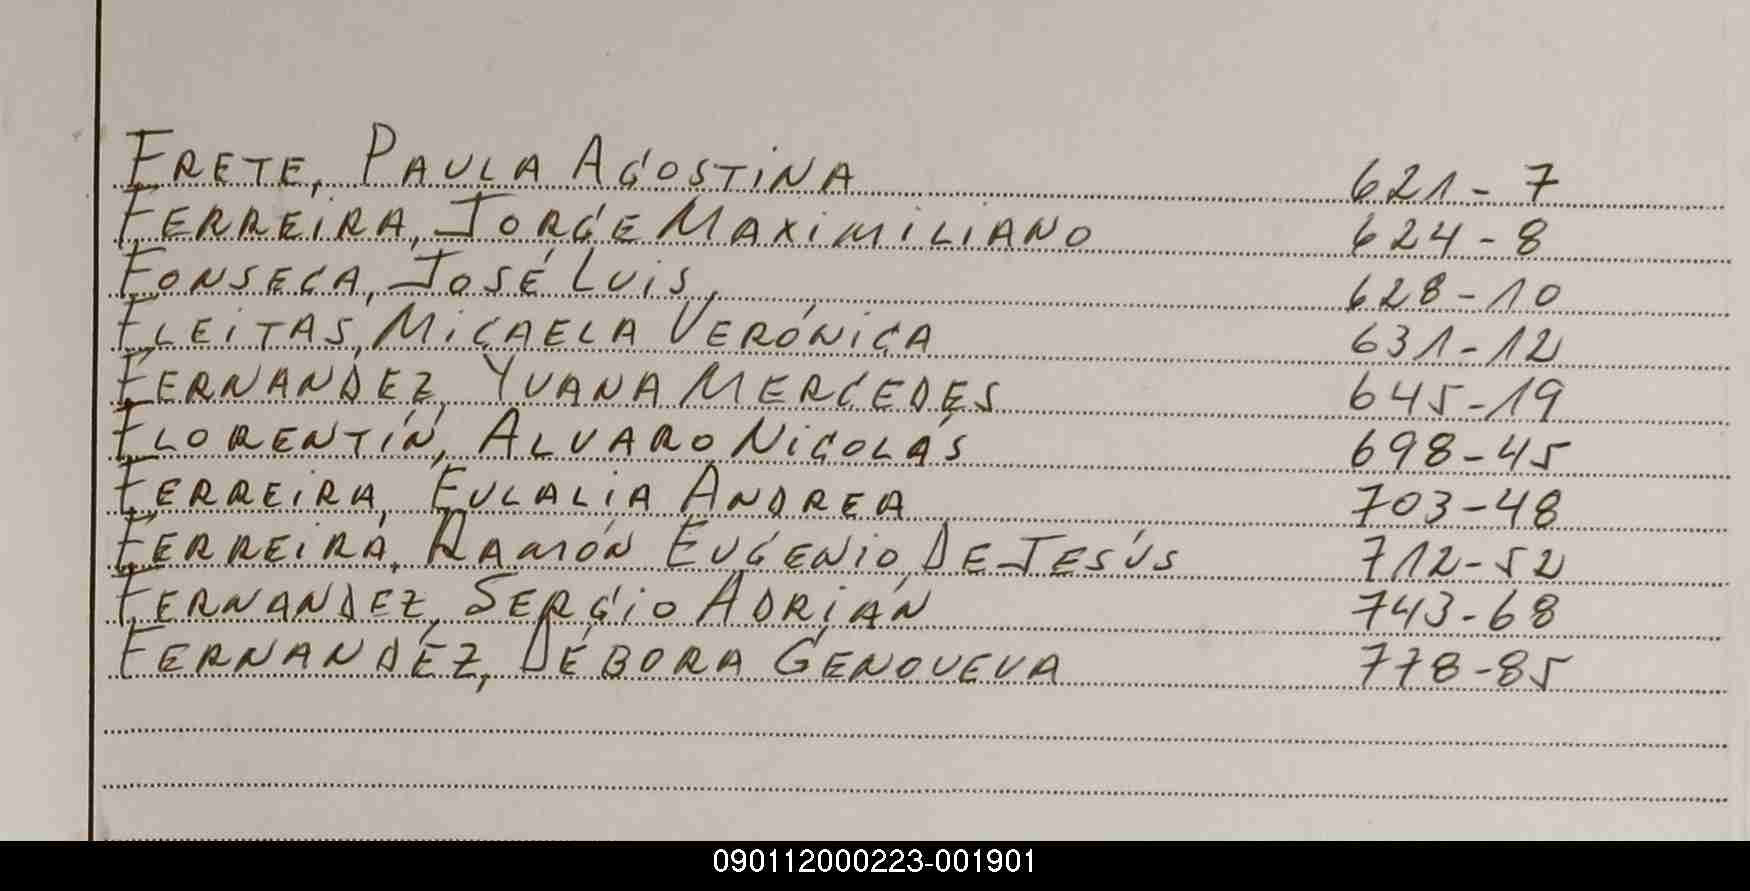 FRETE, PAULA AGOSTINA 621-7
FERREIRA, JORGE MAXIMILIANO 624-8
FONSECA, JOSÉ LUIS, 628-10
FLEITAS, MICAELA VERÓNICA 631-12
FERNANDEZ, YVANA MERCEDES 645-19
FLORENTÍN, ALVARO NICOLÁS 698-45
FERREIRA, EULALIA ANDREA 703-48
FERREIRA, RAMÓN EUGENIO DE JESÚS 712-52
FERNANDEZ, SERGIO ADRIÁN 743-68
FERNANDÉZ, DÉBORA GENOVEVA 778-85
090112000223-001901